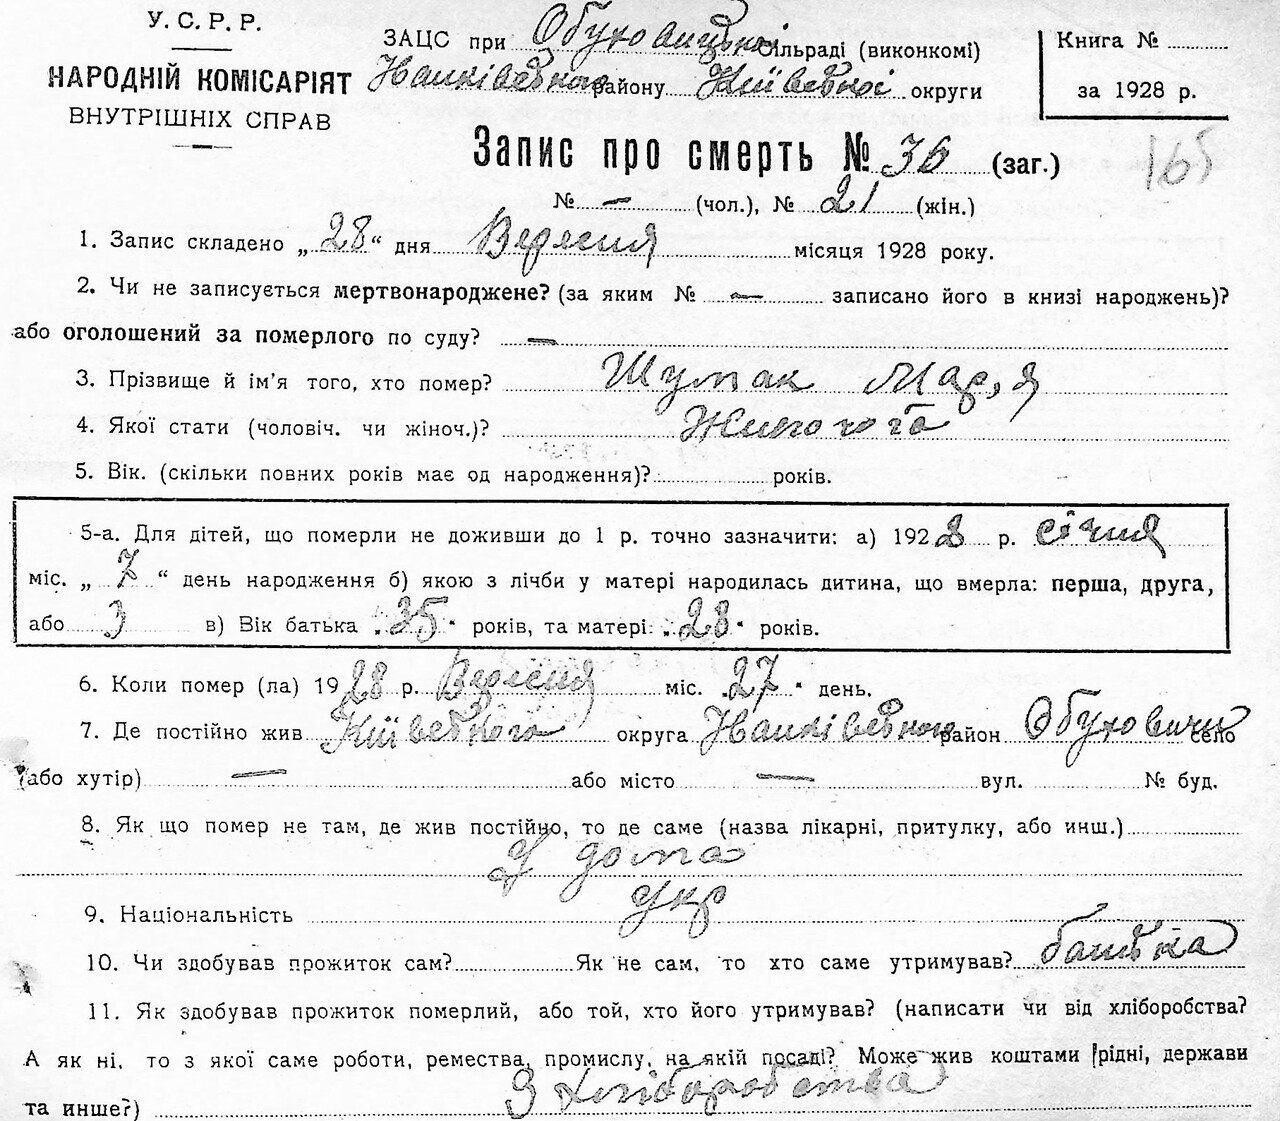 У. С. Р. Р.
НАРОДНІЙ КОМІСАРІЯТ
ВНУТРІШНІХ СПРАВ
ЗАЦС при Обуховицькій сільраді (виконкомі)
району Київської округи
Книга №
за 1928 р.
Запис про смерть № 36 (заг.)
165
№ — (чол.), № 21 (жін.)
1. Запис складено „ 28 “ дня Вересня місяця 1928 року.
2. Чи не записується мертвонароджене? (за яким № — записано його в книзі народжень)?
або оголошений за померлого по суду? —
3. Прізвище й ім'я того, хто помер? Шумак Марія
4. Якої стати (чоловіч. чи жіноч.)?
5. Вік. (скільки повних років має од народження)? років.
5-а. Для дітей, що померли не доживши до 1 р. точно зазначити: а) 1928 р. січня
міс. „ 7 “ день народження б) якою з лічби у матері народилась дитина, що вмерла: перша, друга,
або 3 в) Вік батька „35“ років, та матері: „28“ років.
6. Коли помер (ла) 1928 р. Вересня міс. „27“ день.
7. Де постійно жив Київського округа район Обуховичи село
(або хутір) — або місто — вул. № буд.
8. Як що помер не там, де жив постійно, то де саме (назва лікарні, притулку, або инш.)
У дома
9. Національність укр
10. Чи здобував прожиток сам? Як не сам, то хто саме утримував? батька
11. Як здобував прожиток померлий, або той, хто його утримував? (написати чи від хліборобства?
А як ні, то з якої саме роботи, ремества, промислу, на якій посаді? Може жив коштами рідні, держави
та инше?) З хліборобства